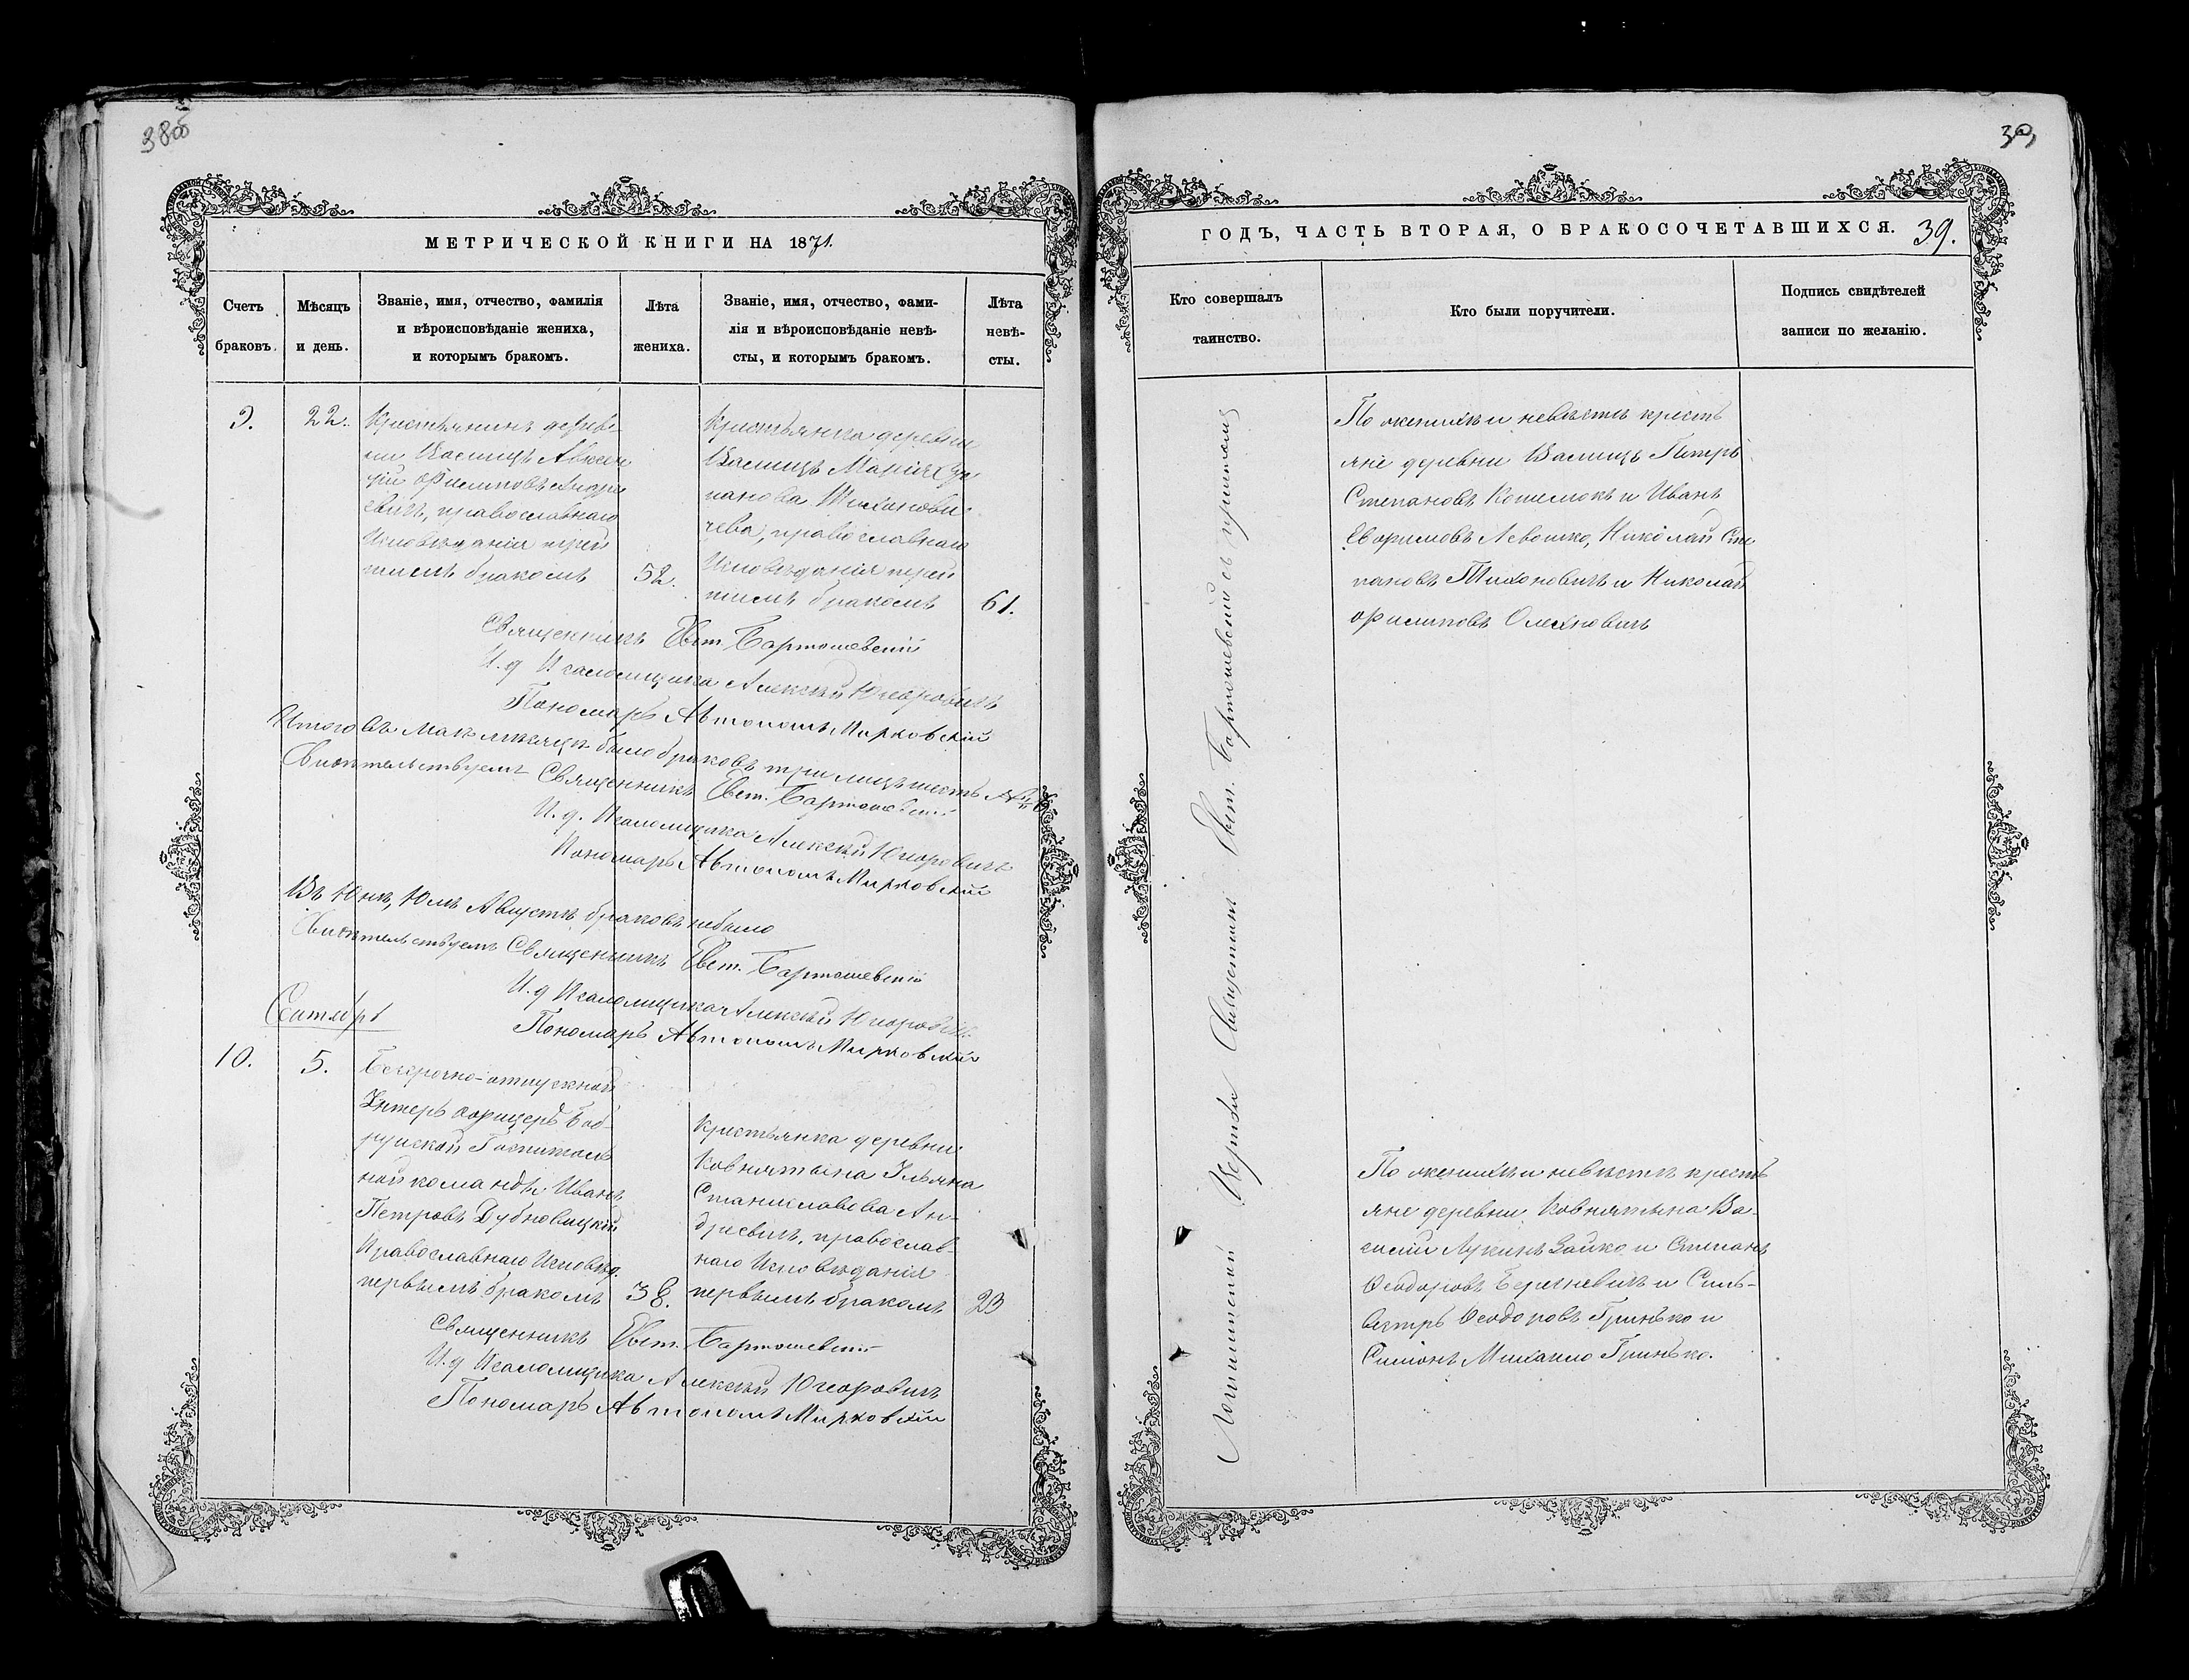 38об
МЕТРИЧЕСКОЙ КНИГИ НА 1871.
Счетъ браковъ.
Мѣсяцъ и день.
Званіе, имя, отчество, фамилія
и вѣроисповѣданіе жениха,
и которымъ бракомъ.
Лѣта
жениха.
Званіе, имя, отчество, фами-
лія и вѣроисповѣданіе невѣ-
сты, и которымъ бракомъ.
Лѣта
невѣ-
сты.
9.
22.
Крестьянинъ дерев-
ни Валищъ Авксен
тій Филиповъ Андре
евичъ, православнаго
Исповѣданія треть
тимъ бракомъ
52.
Крестьянка деревни
Валищъ Марія Сте
панова Тихонови-
чева, православнаго
Исповѣданія треть
тимъ бракомъ
61.
Священникъ Евст. Бартошевскій
И.д Псаломщика Алексѣй Югоровичъ
Пономарь Автономъ Мирковскій
Итого въ Маѣ мѣсяцѣ было браковъ три лицъ шесть № 6
Свидѣтельствуемъ Священникъ Евст. Бартошевскій
И.д. Псаломщика Алексѣй Югоровичъ
Пономарь Автономъ Мирковскій
Въ Юнѣ, Юлѣ Августѣ браковъ небыло
Свидѣтельствуемъ Священникъ Евст. Бартошевскій
И.д Псаломщика Алексѣй Югоровичъ
Пономарь Автономъ Мирковскій
Сентябрь
10.
5.
Безсрочно-отпускной
Унтеръ офицеръ Боб-
руйской Госпиталь
ной команды Иванъ
Петровъ Дубновицкій
Православнаго Исповѣд.
первымъ бракомъ
38.
Крестьянка деревни
Ковнятына Ульяна
Станиславова Ан-
дреевичъ, православ-
наго Исповѣданія
первымъ бракомъ
23
Священникъ Евст. Бартошевскій
И.д Псаломщика Алексѣй Югоровичъ
Пономарь Автономъ Мирковскій
39
ГОДЪ, ЧАСТЬ ВТОРАЯ, О БРАКОСОЧЕТАВШИХСЯ. 39.
Кто совершалъ
таинство.
Кто были поручители.
Подпись свидѣтелей
записи по желанію.
Логишинской Церкви Священникъ Евст. Бартошевскій съ причтомъ
По женихѣ и невѣстѣ кресть
яне деревни Валищъ Петръ
Степановъ Кошелюкъ и Иванъ
Ефримовъ Левошко, Николай Сте
пановъ Тихоновичъ и Николай
Филиповъ Олехновичъ
По женихѣ и невѣстѣ кресть
яне деревни Ковнятына Ва-
силій Лукинъ Зайко и Степанъ
Феодоровъ Берхневичъ и Силь-
вестръ Феодоровъ Гринько и
Симонъ Михаило Гринько.